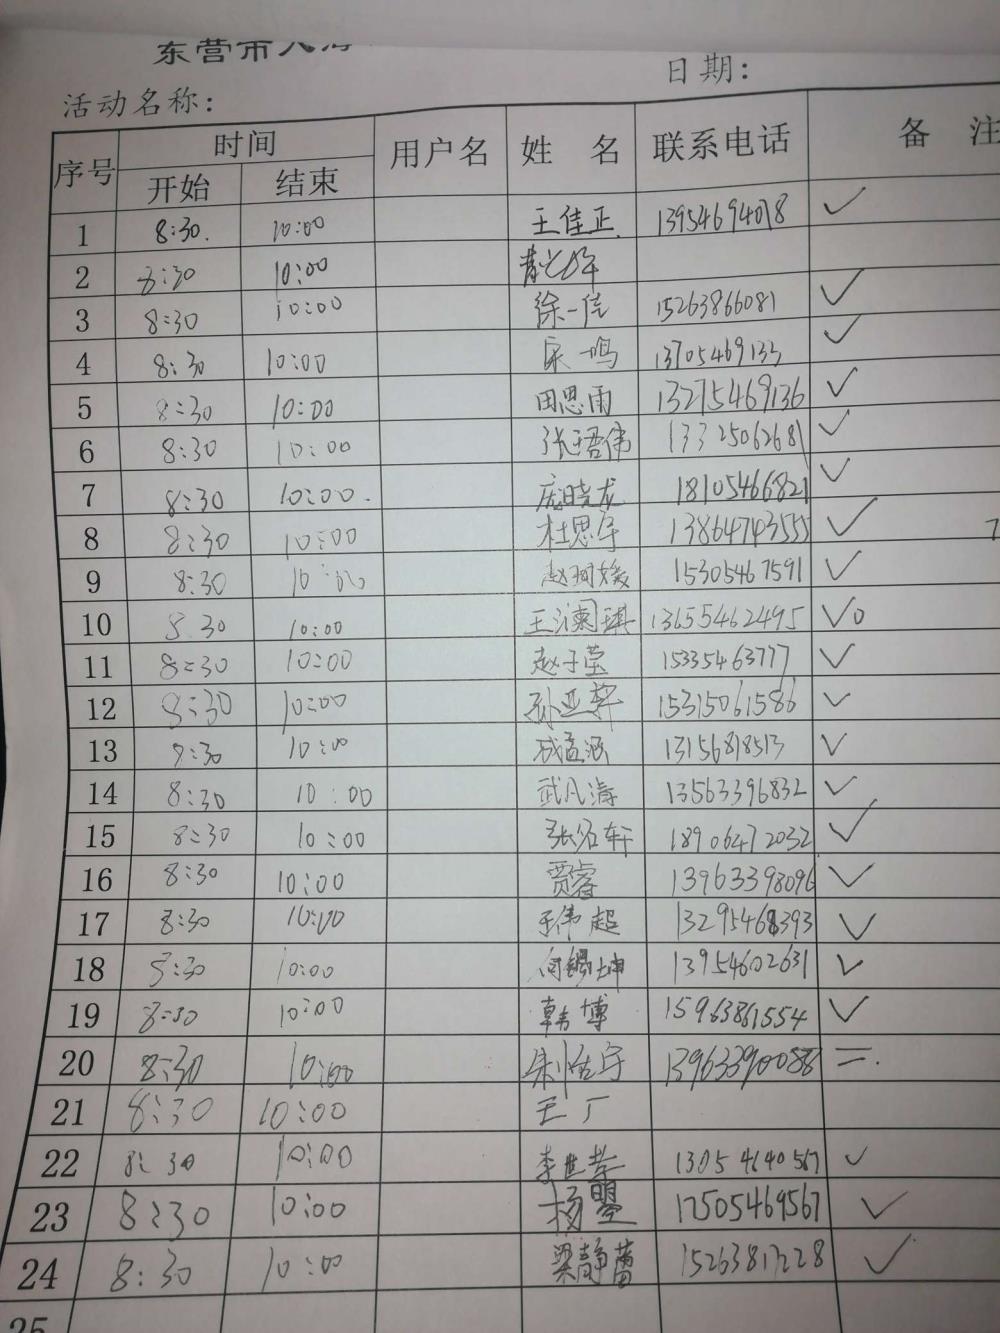 东营市人
日期:
活动名称:
序号 时间 用户名 姓 名 联系电话 备 注
开始 结束
1 8:30. 10:00 王佳正 13954694078 ✓
2 8:30 10:00
3 8:30 10:00 徐一佳 15263866081 ✓
4 8:30 10:00 一鸣 13705469133 ✓
5 8:30 10:00 田思雨 13275469136 ✓
6 8:30 10:00 张珸伟 13325062681 ✓
7 8:30 10:00. 庞晓龙 18105466821 ✓
8 8:30 10:00 杜思宇 13864743555 ✓ 7
9 8:30 10:00 赵珂媛 15305467591 ✓
10 8.30 10:00 王澜琪 13655462495 ✓0
11 8:30 10:00 赵子莹 15335463777 ✓
12 8:30 10:00 孙亚苹 15315061586 ✓
13 8:30 10:00 成孟涵 13156818513 ✓
14 8:30 10:00 武凡涛 13563396832 ✓
15 8:30 10:00 张名轩 18906472032 ✓
16 8:30 10:00 贾睿 13963398096 ✓
17 8:30 10:00 王伟超 13295468393 ✓
18 8:30 10:00 坤 13954602631 ✓
19 8:30 10:00 韩博 15963861554 ✓
20 8:30 10:00 朱怡宇 13963390088 二.
21 8:30 10:00 王厂
22 8:30 10:00 李世 13054640567 ✓
23 8:30 10:00 杨曌 17505469567 ✓
24 8:30 10:00 梁静蕾 15263817228 ✓
25